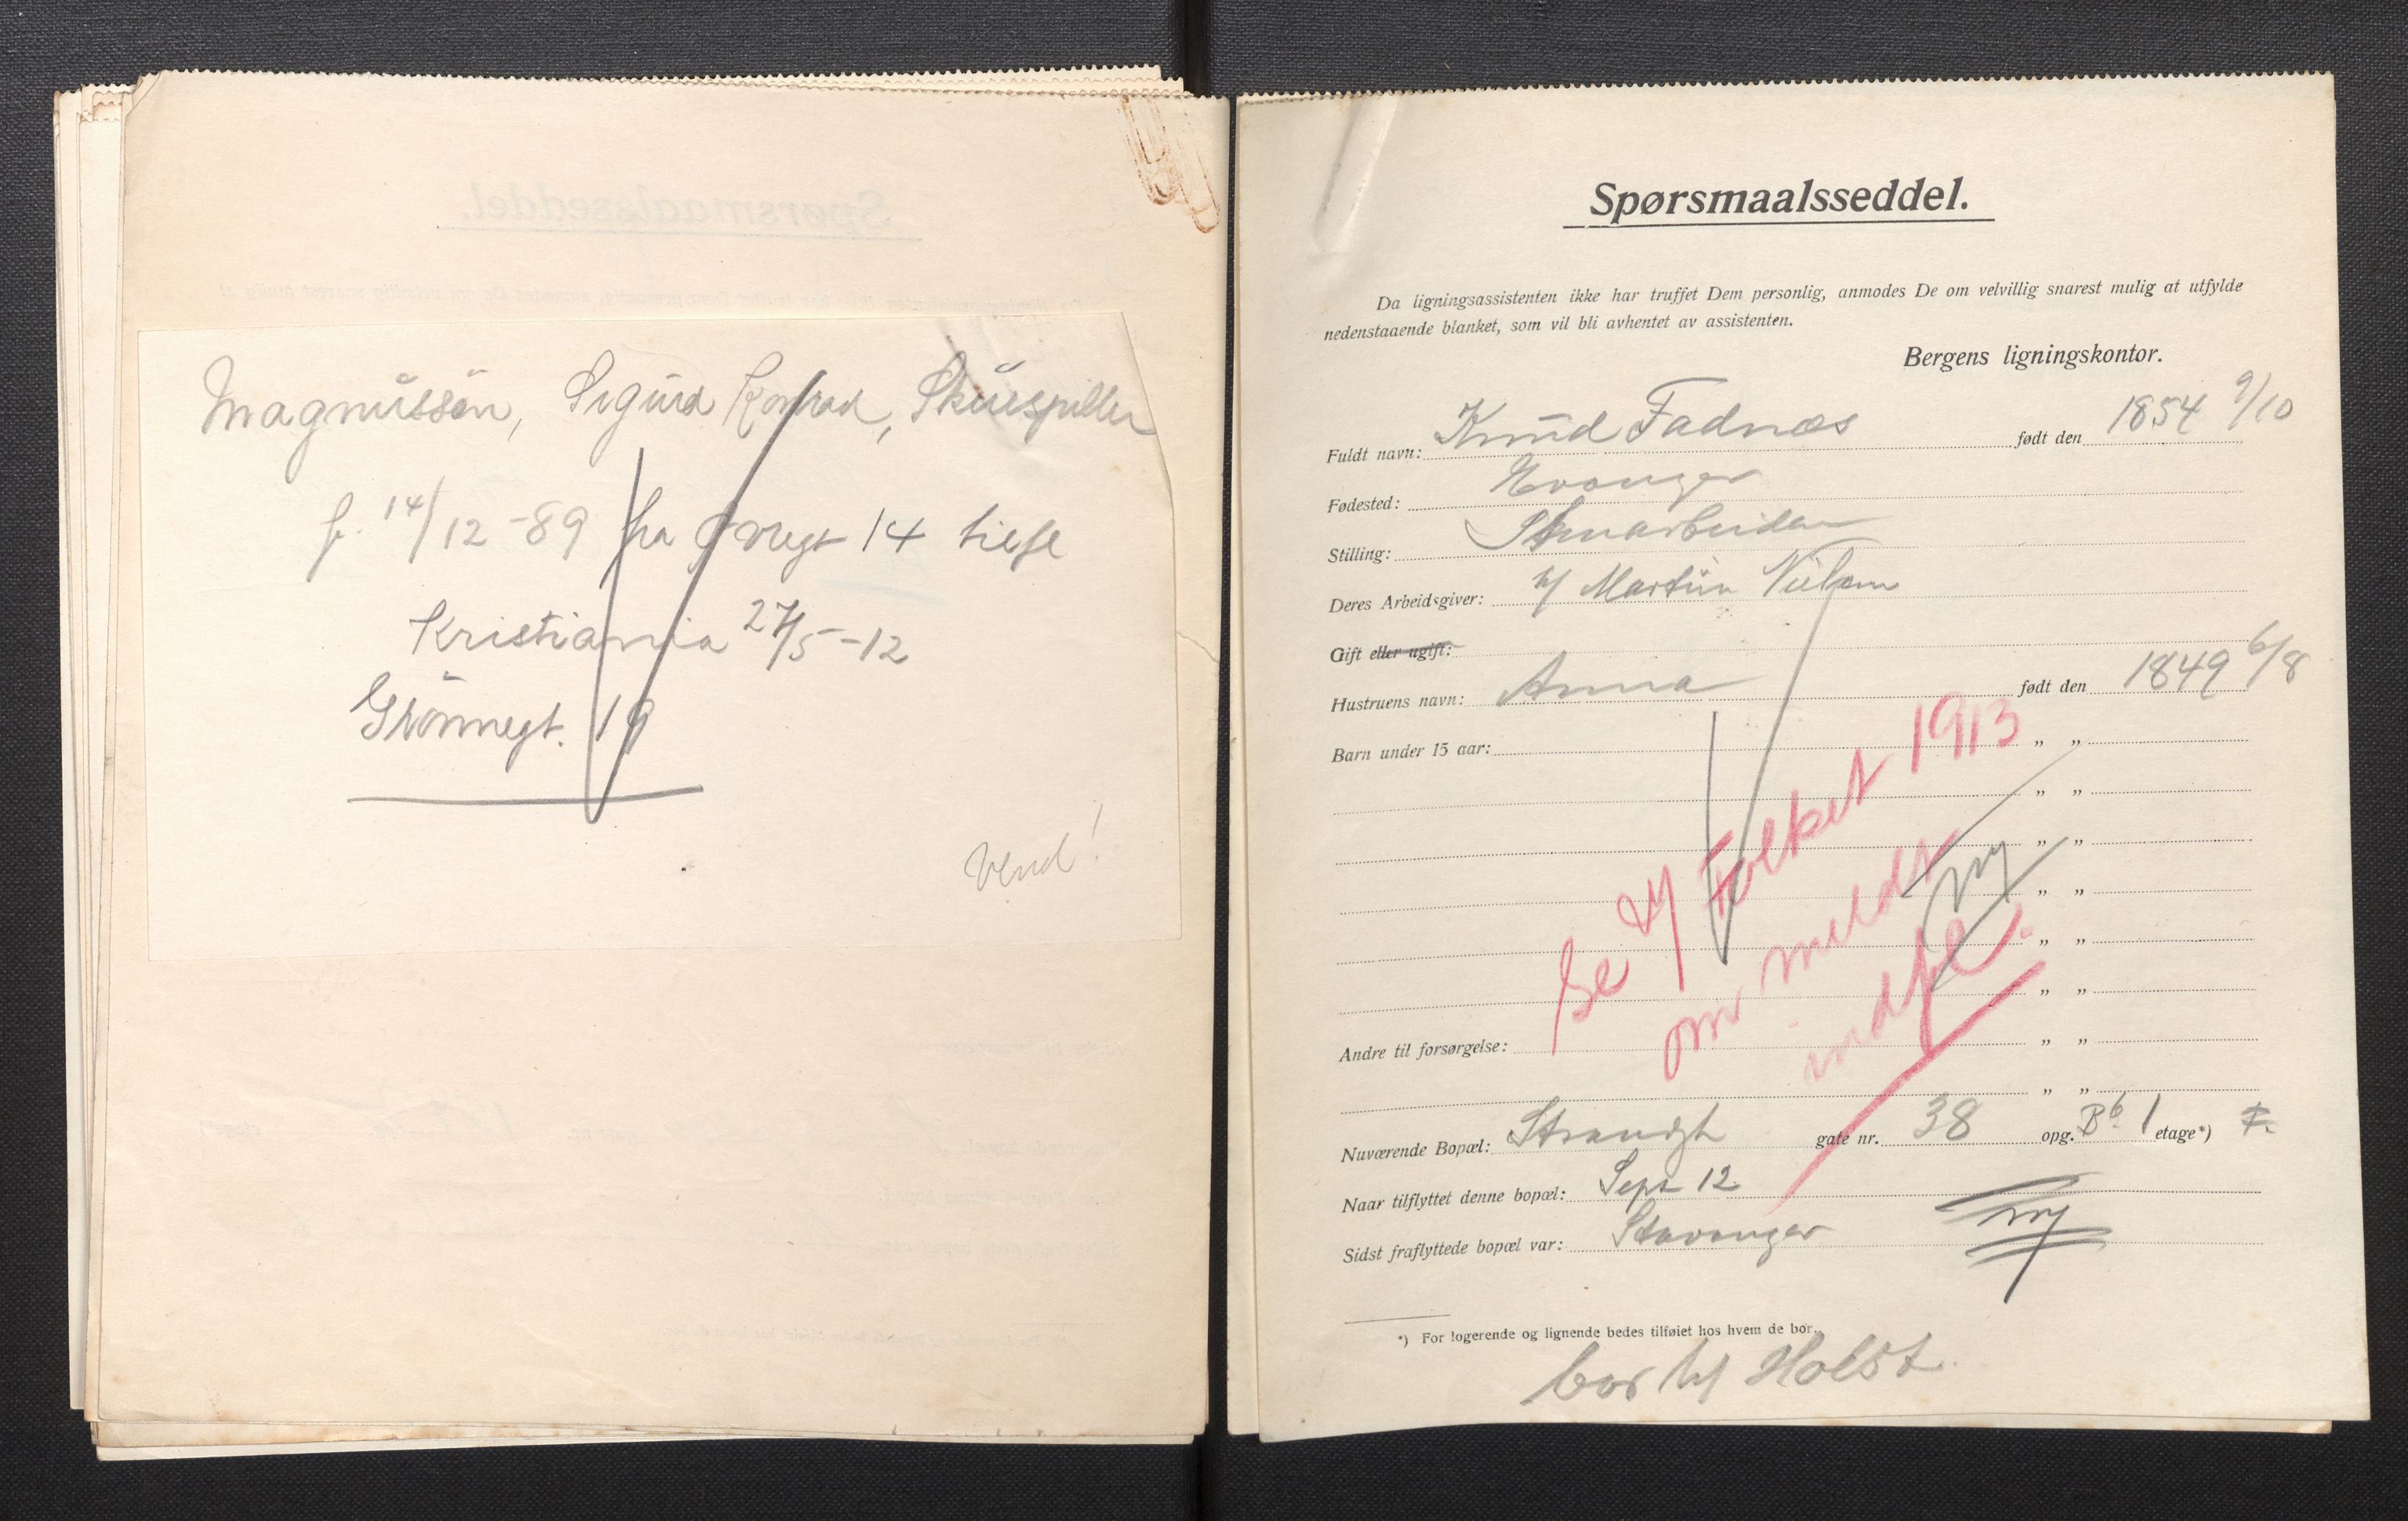 Magnussen, Sigurd Konrad, Skuespiller
f. 14/12-89 fra 14
Kristiania 27/5-12
Grönnegt. 19
Vend!
Spørsmaalsseddel.
Da ligningsassistenten ikke har truffet Dem personlig, anmodes De om velvillig snarest mulig at utfylde
nedenstaaende blanket, som vil bli avhentet av assistenten.
Bergens ligningskontor.
Fuldt navn: Knud Fadnæs født den 1854 9/10
Fødested: Evanger
Stilling: Skuarbeider
Deres Arbeidsgiver: h/ Martin Nielsen
Gift eller ugift:
Hustruens navn: Anna født den 1849 6/8
Barn under 15 aar: „ „
„ „
„ „
„ „
„ „
„ „
Andre til forsørgelse: „ „
„ „
Se Folket 1913
om meldt
ny
Nuværende Bopæl: Strandgt gate nr. 38 opg. B b 1 etage*)
Naar tilflyttet denne bopæl: Sept 12
Sidst fraflyttede bopæl var: Stavanger ny
*) For logerende og lignende bedes tilføiet hos hvem de bor.
bor h/ Holst.